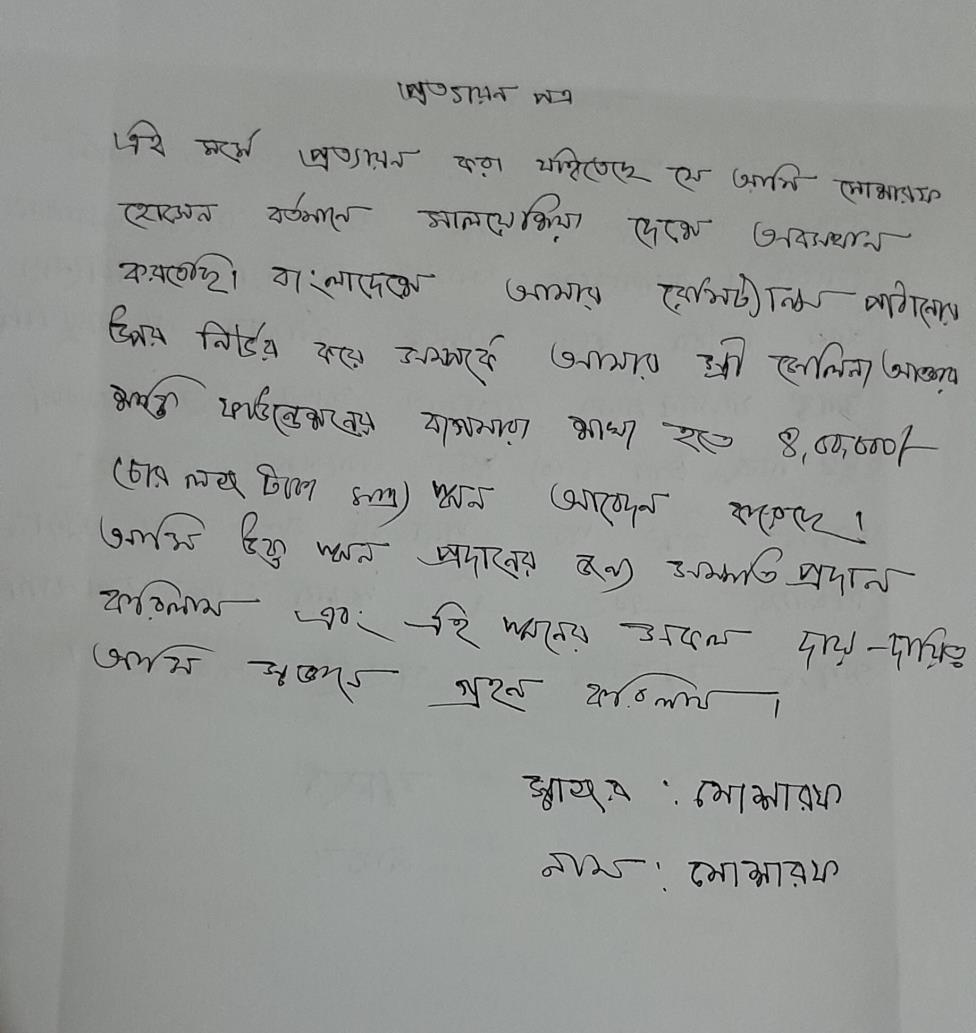 প্রত্যায়ন পত্র
এই মর্মে প্রত্যায়ন করা যাইতেছে যে আমি মোশারফ
হোসেন বর্তমানে মালয়েশিয়া দেশে অবস্থান
করতেছি। বাংলাদেশে আমার রেমিট্যান্স পাঠানোর
উপর নির্ভর করে আমার স্ত্রী সেলিনা আক্তার
ফাউন্ডেশনের শাখা হতে ৪,০০,০০০/-
(চার লক্ষ টাকা মাত্র) ঋন আবেদন করেছে।
আমি উক্ত ঋন প্রদানের জন্য সম্মতি প্রদান
করিলাম এবং এই ঋনের সকল দায়-দায়িত্ব
আমি স্বজ্ঞানে গ্রহন করিলাম।
স্বাক্ষর : মোশারফ
নাম : মোশারফ